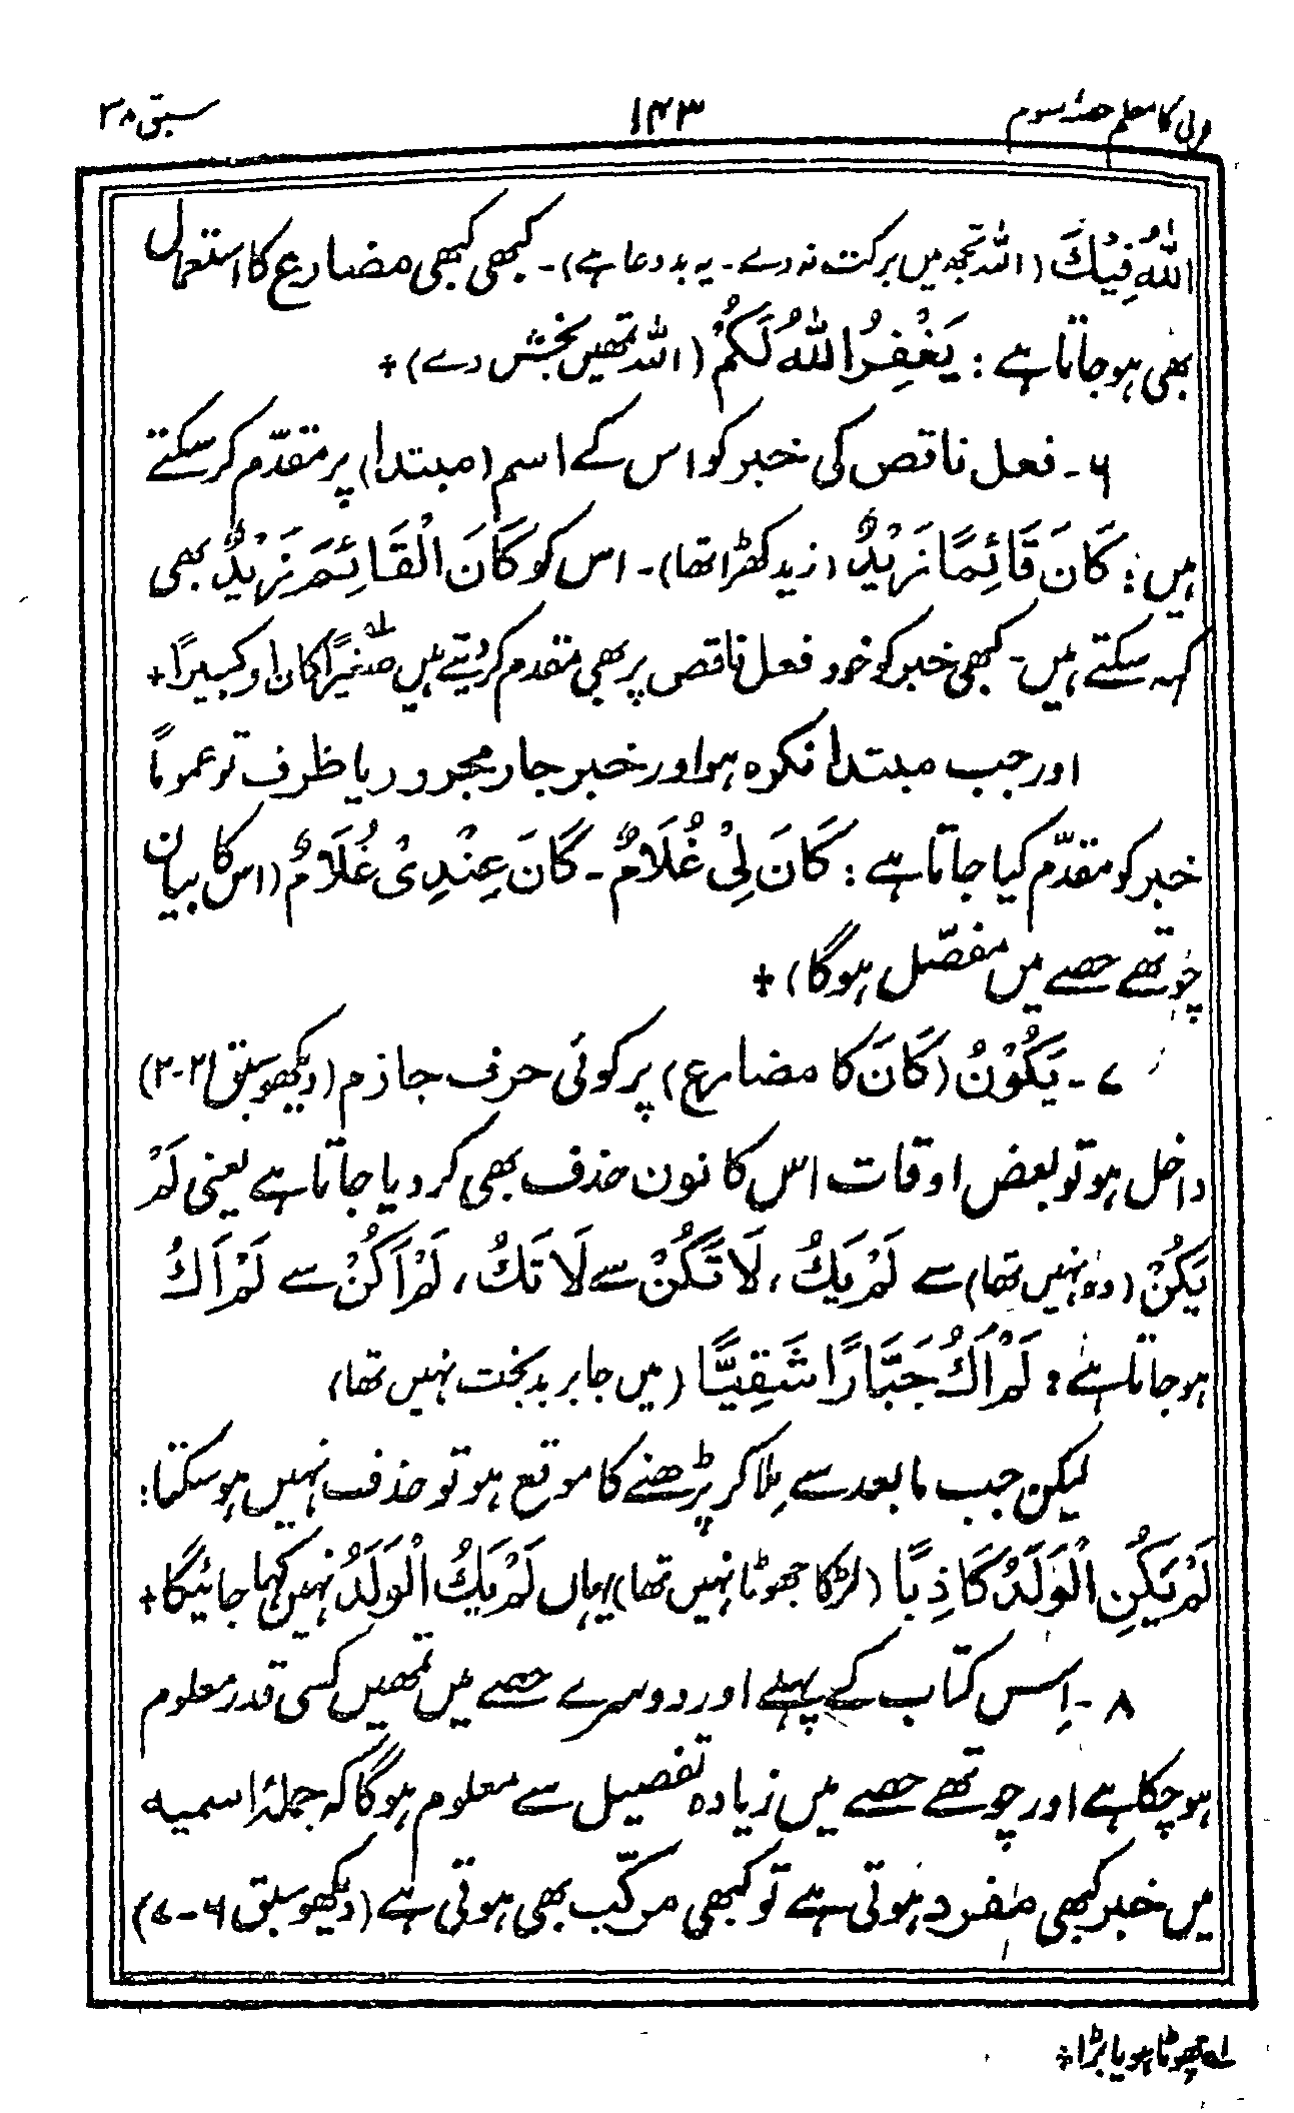 عربی کا معلم حصۂ سوم ۱۴۳ سبق ۳۸
اللّٰهُ فِيْكَ (اللہ تجھ میں برکت نہ دے۔ یہ بد دعا ہے)۔ کبھی کبھی مضارع کا استعمال
بھی ہو جاتا ہے: يَغْفِرُ اللّٰهُ لَكُمْ (اللہ تمھیں بخش دے)+
۶۔ فعل ناقص کی خبر کو اس کے اسم (مبتدا) پر مقدّم کر سکتے
ہیں: كَانَ قَائِمًا زَيْدٌ (زید کھڑا تھا)۔ اس کو كَانَ الْقَائِمَ زَيْدٌ بھی
کہہ سکتے ہیں۔ کبھی خبر کو خود فعل ناقص پر بھی مقدم کر دیتے ہیں صَغِيْرًا كَانَ او كبيرًا لہ+
اور جب مبتدا نکرہ ہو اور خبر جار مجرور یا ظرف تو عموماً
خبر کو مقدّم کیا جاتا ہے: كَانَ لِيْ غُلَامٌ۔ كَانَ عِنْدِيْ غُلَامٌ (اس کا بیان
چوتھے حصے میں مفصّل ہوگا)+
۷۔ يَكُوْنُ (كَانَ کا مضارع) پر کوئی حرف جازم (دیکھو سبق ۲۱-۳)
داخل ہو تو بعض اوقات اس کا نون حذف بھی کر دیا جاتا ہے یعنی لَمْ
يَكُنْ (وہ نہیں تھا) سے لَمْ يَكُ، لَا تَكُنْ سے لَا تَكُ، لَمْ اَكُنْ سے لَمْ اَكُ
ہو جاتا ہے: لَمْ اَكُ جَبَّارًا شَقِيًّا (میں جابر بدبخت نہیں تھا)
لیکن جب مابعد سے مِلا کر پڑھنے کا موقع ہو تو حذف نہیں ہو سکتا:
لَمْ يَكُنِ الْوَلَدُ كَاذِبًا (لڑکا جھوٹا نہیں تھا) یہاں لَمْ يَكُ الْوَلَدُ نہیں کہا جائیگا+
۸۔ اِس کتاب کے پہلے اور دوسرے حصے میں تمھیں کسی قدر معلوم
ہو چکا ہے اور چوتھے حصے میں زیادہ تفصیل سے معلوم ہوگا کہ جملۂ اسمیہ
میں خبر کبھی مفرد ہوتی ہے تو کبھی مرکّب بھی ہوتی ہے (دیکھو سبق ۶-۷)
لہ چھوٹا ہو یا بڑا+